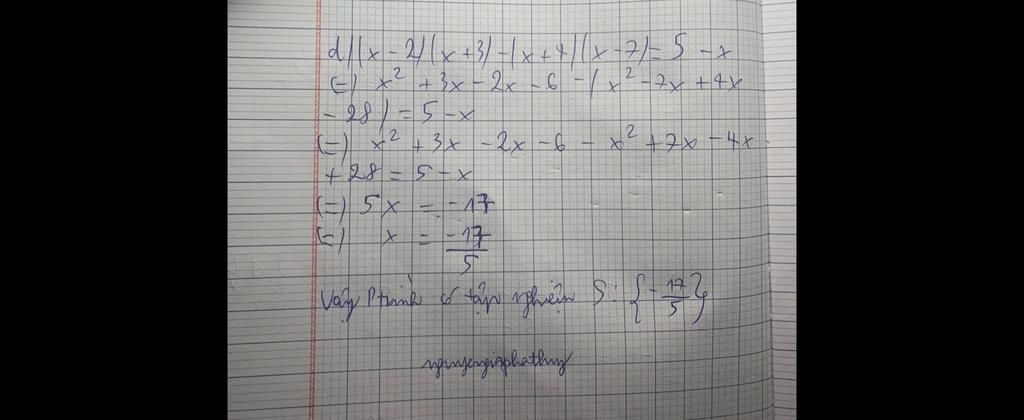 d) (x - 2)(x + 3) - (x + 4)(x - 7) = 5 - x
(=) x² + 3x - 2x - 6 - (x² - 7x + 4x
- 28) = 5 - x
(=) x² + 3x - 2x - 6 - x² + 7x - 4x
+ 28 = 5 - x
(=) 5x = -17
(=) x = -17/5
Vậy Ptrình có tập nghiệm S: {-17/5}
nguyengiaphathuy